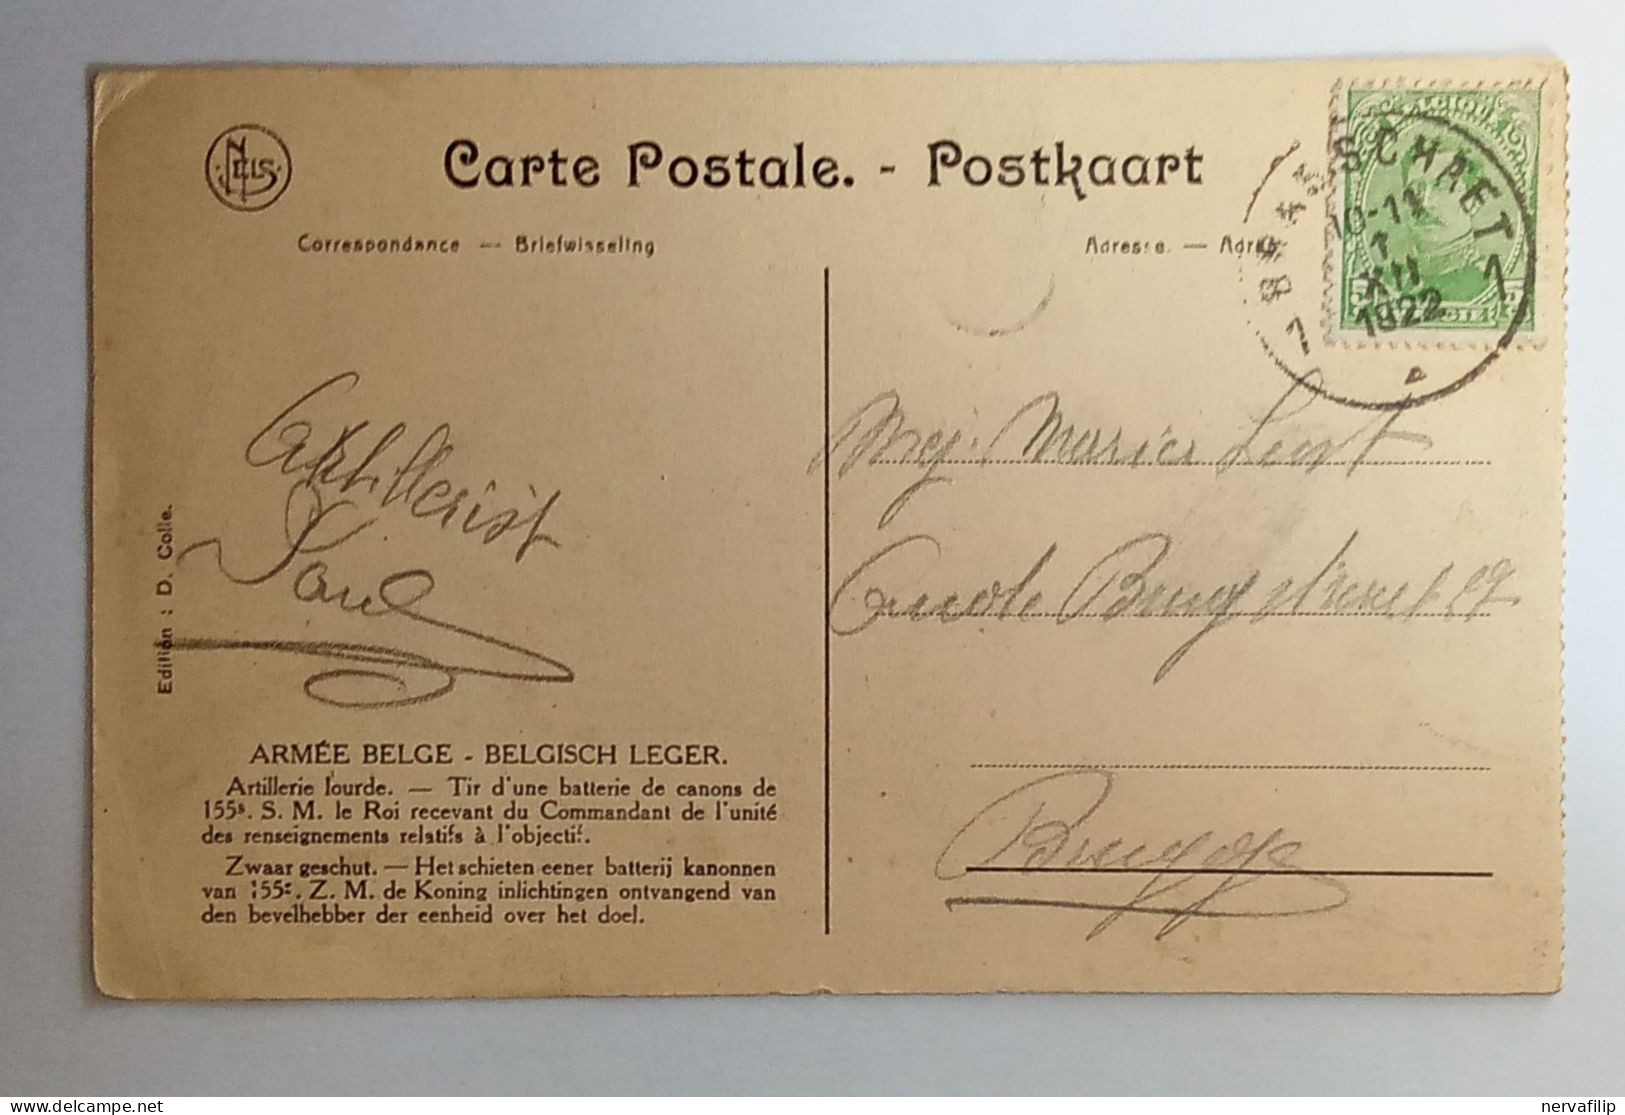 NELS
Carte Postale. - Postkaart
Correspondance — Briefwisseling
Adresse. — Adres
BELGIQUE
BRASSCHAET
10-11
1
XII
1922
1 1
5 5
Artillerist
Paul
Mej. Maria
Brugge
Edition : D. Colle.
ARMÉE BELGE - BELGISCH LEGER.
Artillerie lourde. — Tir d'une batterie de canons de
155s. S. M. le Roi recevant du Commandant de l'unité
des renseignements relatifs à l'objectif.
Zwaar geschut. — Het schieten eener batterij kanonnen
van 155s. Z. M. de Koning inlichtingen ontvangend van
den bevelhebber der eenheid over het doel.
delcampe.net
nervafilip